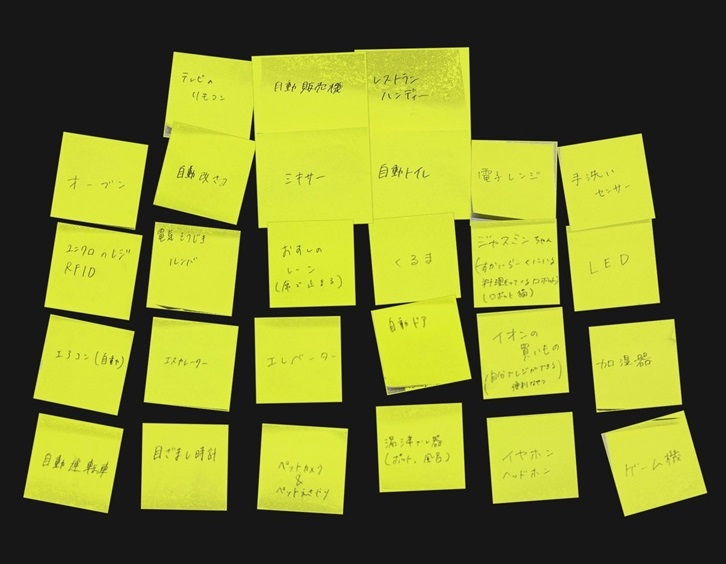 テレビの
リモコン
自動販売機
レストラン
ハンディー
オーブン
自動改さつ
ミキサー
自動トイレ
電子レンジ
手洗い
センサー
ユニクロのレジ
RFID
電気そうじき
ルンバ
おすしの
レーン
(席で止まる)
くるま
ジャスミンちゃん
(すかいらーくにいる
料理もってくるロボット)
(ロボット猫)
LED
エアコン(自動)
エスカレーター
エレベーター
自動ドア
イオンの
買いもの
(自分でレジができる
便利なやつ
加湿器
自動運転車
目ざまし時計
ペットカメラ
&
ペットえさやり
湯沸かし器
(ポット、風呂)
イヤホン
ヘッドホン
ゲーム機